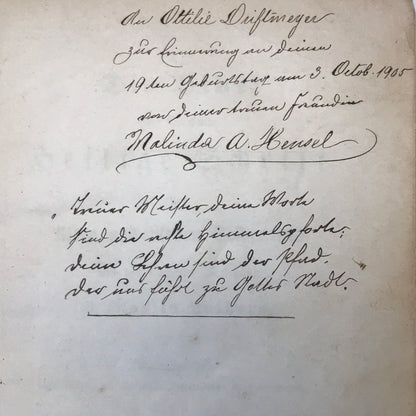 An Ottilie Driftmeyer
zur Erinnerung an deinen
19ten Geburtstag am 3. Octob. 1905
von deiner treuen Freundin
Malinda A. Hensel
"Treuer Meister, deine Worte
Sind die rechte Himmelspforte;
deine Lehren sind der Pfad.
Der uns führt zu Gottes Stadt.